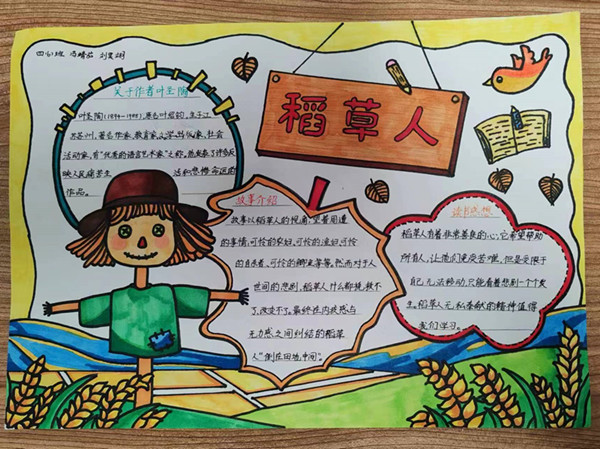 四(1)班
稻草人
关于作者叶圣陶
叶圣陶(1894-1988),原名叶绍钧,生于江
苏苏州,著名作家、教育家、文学出版家、社会
活动家,有"优秀的语言艺术家"之称,他发表了许多反
映人民痛苦生活和悲惨命运的
作品。
故事介绍
故事以稻草人的视角,望着周遭
的事情,可怜的农妇,可怜的渔妇,可怜
的自杀者,可怜的鲫鱼等等。然而对于人
世间的悲剧,稻草人什么都拯救不
了,改变不了。最终在内疚感与
无力感之间纠结的稻草
人"倒在田地中间"。
读书感想
稻草人有着非常善良的心,它希望帮助
所有人,让他们免受苦难,但是受限于
自己无法移动,只能看着悲剧一个个发
生。稻草人无私奉献的精神值得
我们学习。